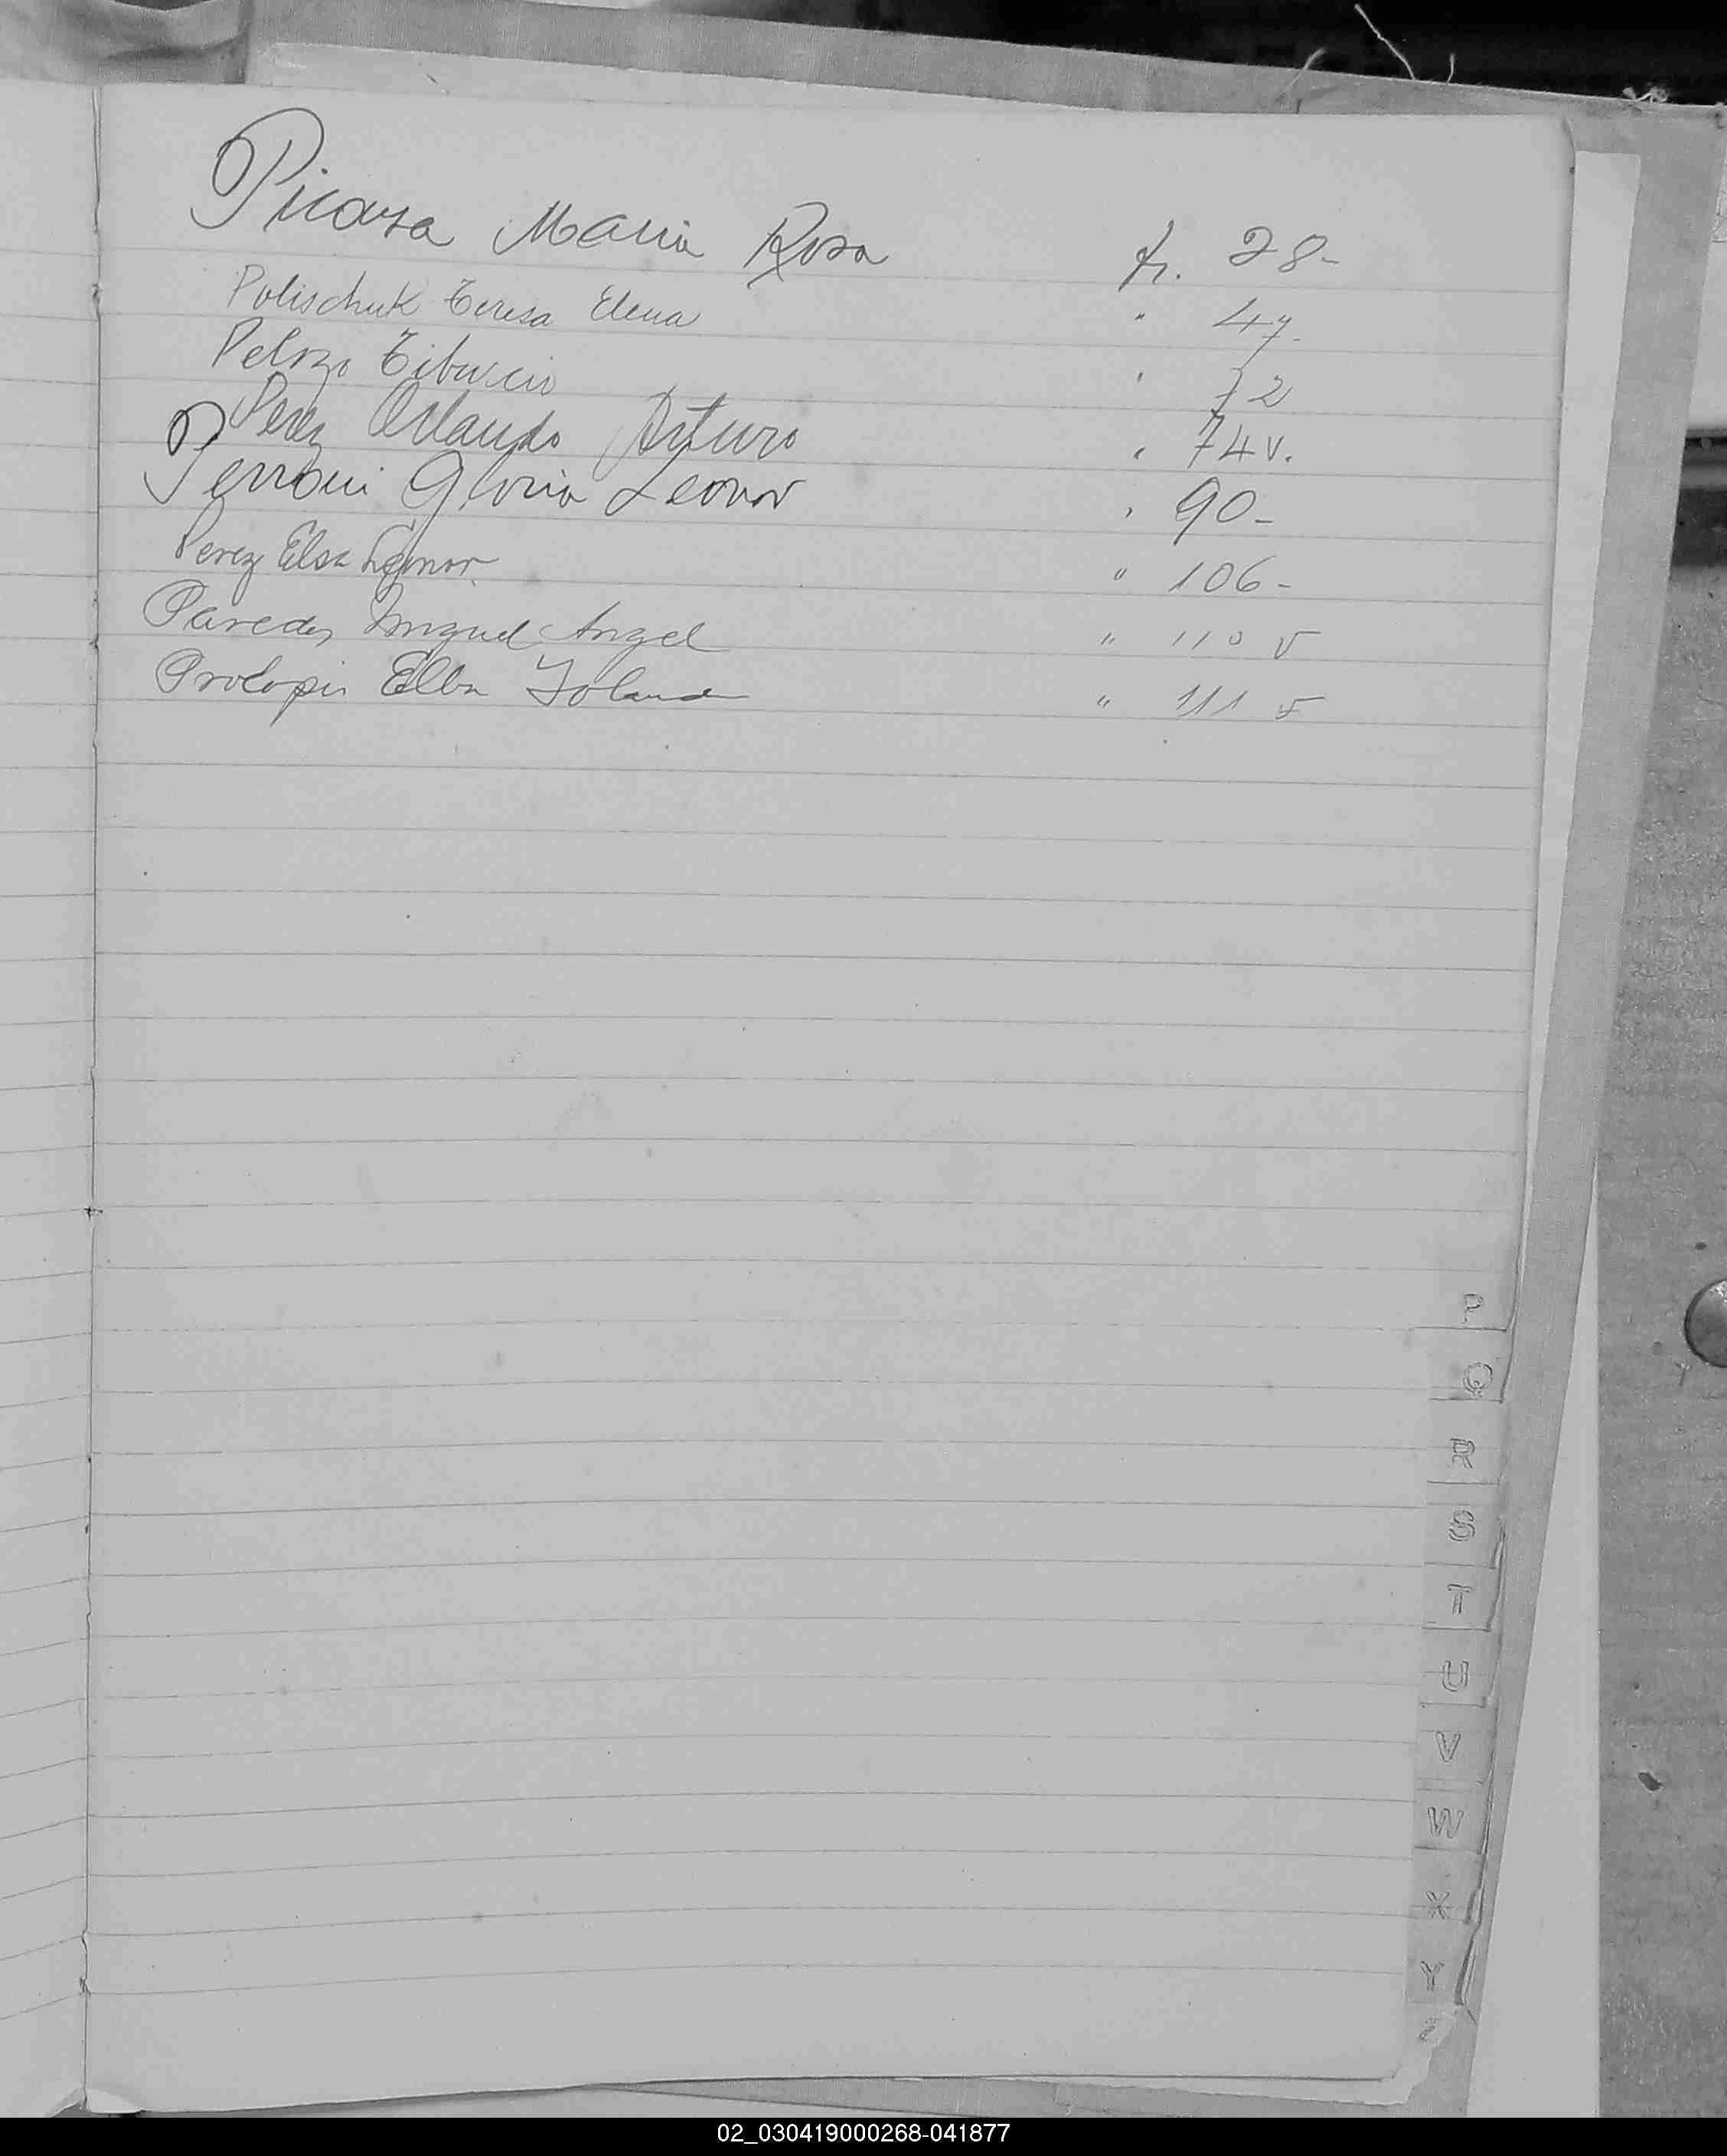 Picaza Maria Rosa fs. 28-
Polischuk Teresa Elena " 47-
Pelozo Tiburcio " 72
Perez Orlando Arturo " 74 v.
Perroni Gloria Leonor " 90-
Perez Elsa Leonor " 106-
Paredes Miguel Angel " 110 v
Procopio Elba Yolanda " 111 v
P
Q
R
S
T
U
V
W
X
Y
Z
02_030419000268-041877